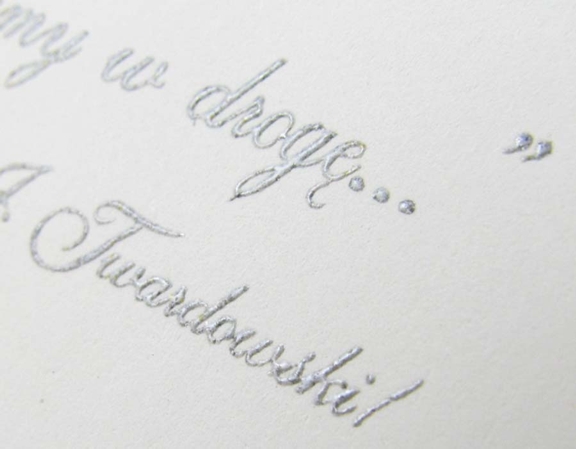 my w drogę... ”
J. Twardowski/